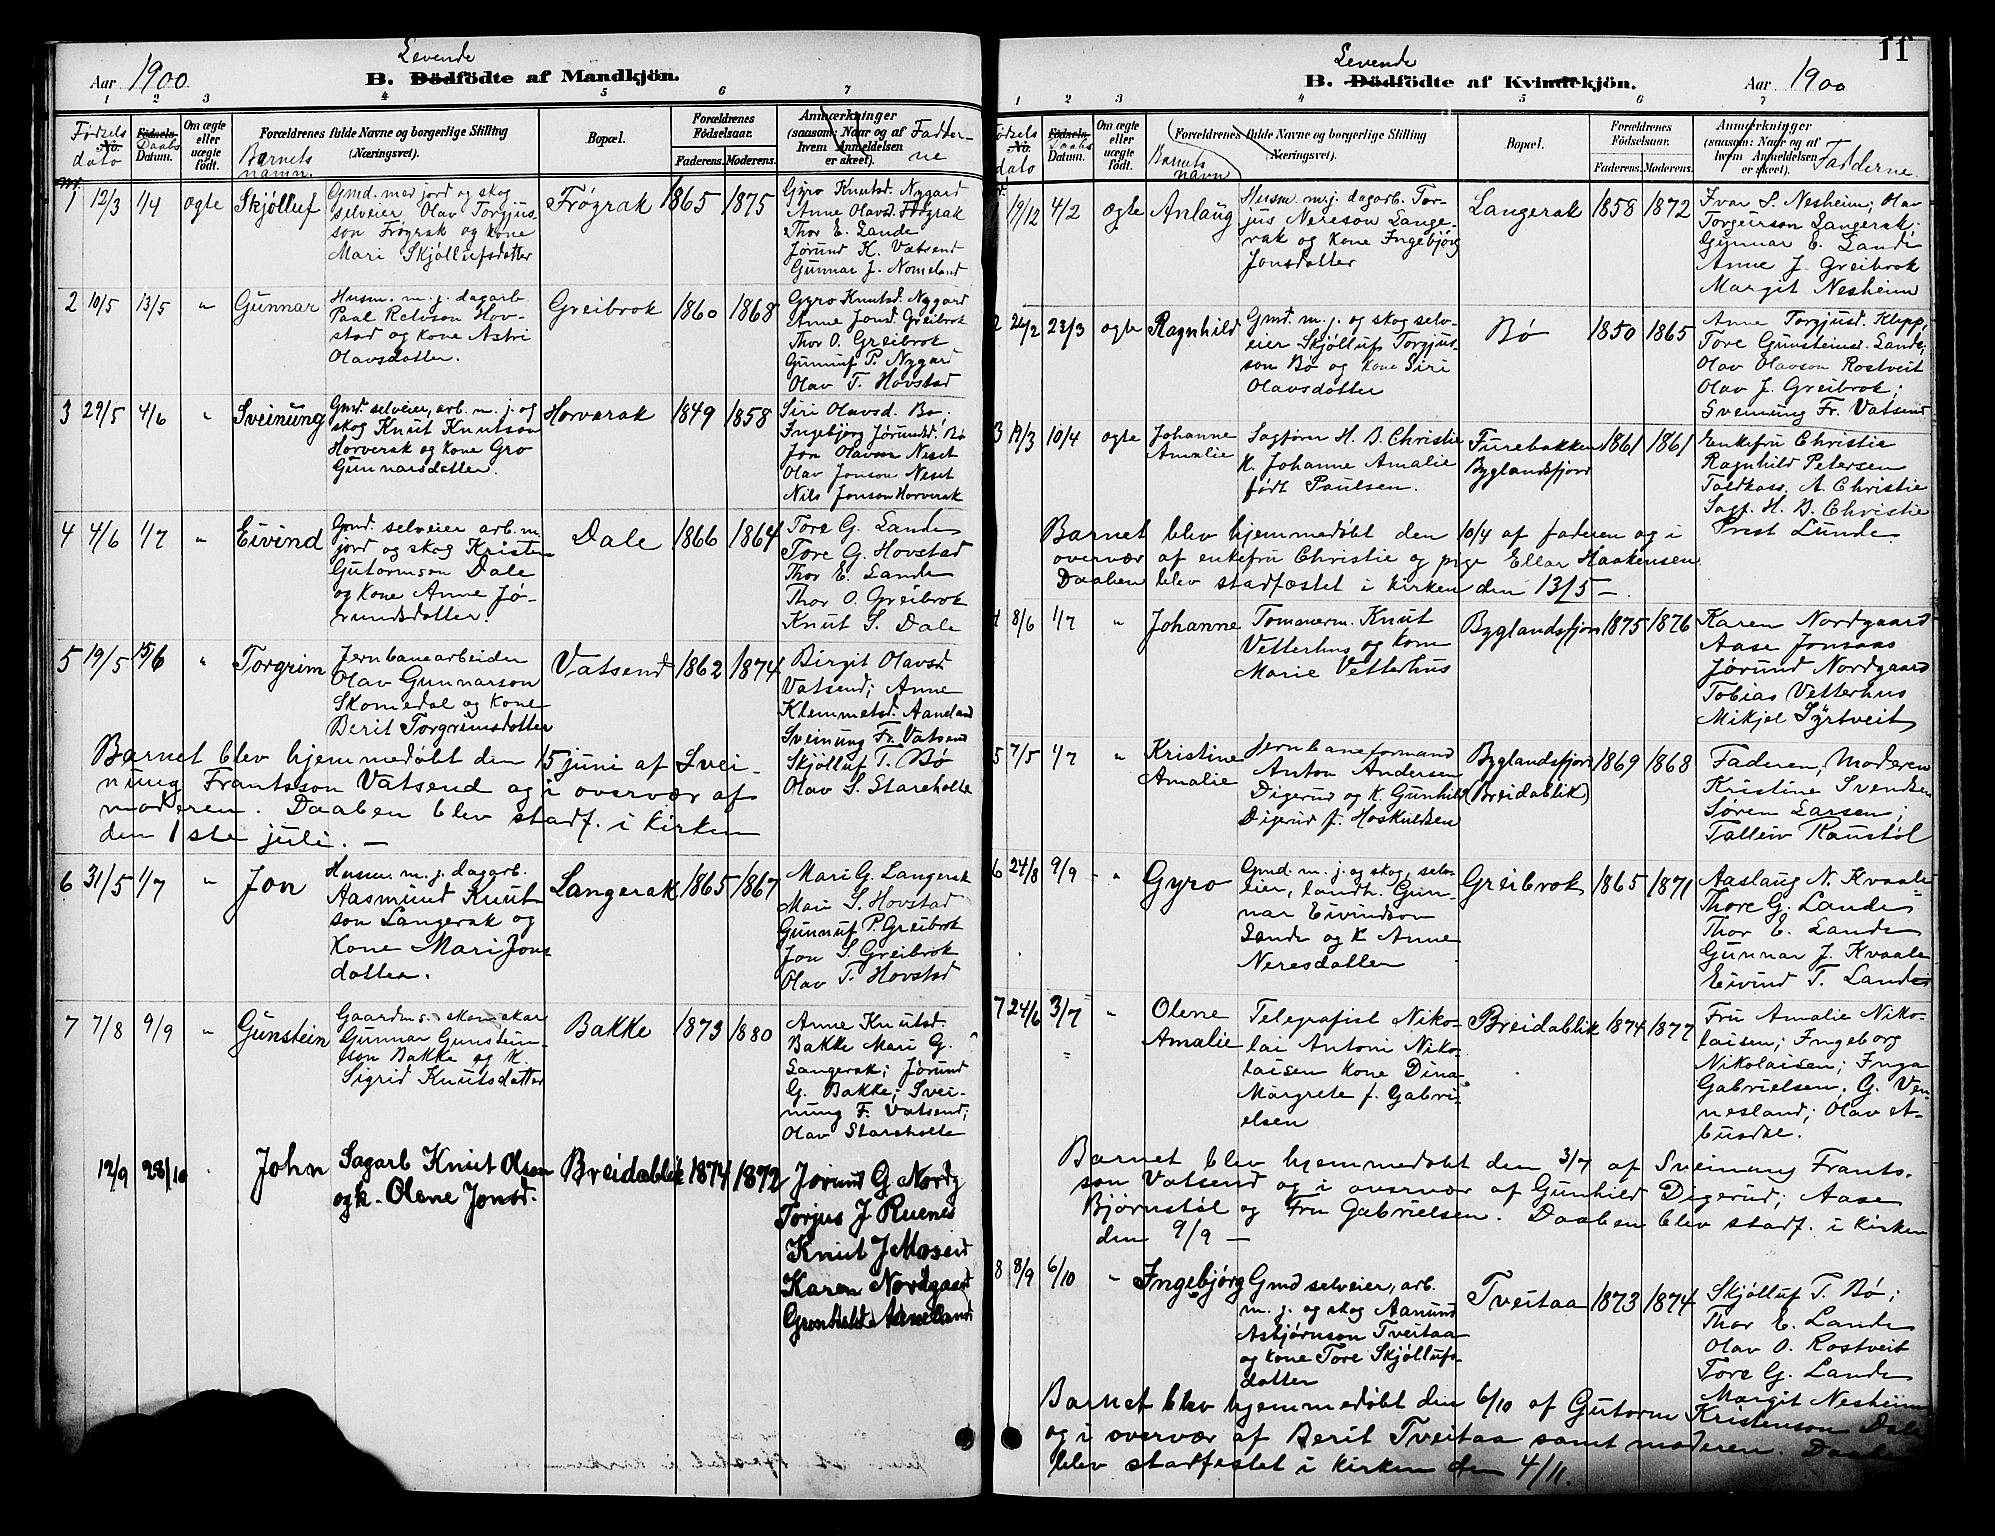 Aar 1900
Levende
B. Dödfödte af Mandkjön.
1 2 3 4 5 6 7
Fødsels dato No.
Födsels Daabs Datum.
Om ægte eller uægte födt.
Forældrenes fulde Navne og borgerlige Stilling (Næringsvei).
Barnets namn.
Bopæl.
Forældrenes Födselsaar.
Faderens. Moderens.
Anmærkninger (saasom: Naar og af hvem Anmeldelsen er skeet).
Fadderne
1 12/3 1/4 ogte Skjølluf
Gmd. med jord og skog
selveier Olav Torgjus-
son Frøyrak og kone
Mari Skjøllufsdatter
Frøyrak 1865 1875
Gyro Knutsd. Nygard
Anne Olavsd. Frøyrak
Thor E. Lande
Jørund K. Vatsend
Gunnar J. Nomeland
2 10/5 13/5 " Gunnar
Husm. m. j. dagarb
Paal Hov-
stad og kone Astri
Olavsdotter.
Greibrok 1860 1868
Gyro Knutsd. Nygard
Anne Jonsd. Greibrok
Thor O. Greibrok
Gunnuf P. Nygard
Olav T. Hovstad
3 29/5 4/6 " Sveinung
Gmd. selveier, arb. m. j. og
skog Knut Knutson
Horverak og kone Gro
Gunnarsdotter.
Horverak 1849 1858
Siri Olavsd. Bø.
Ingebjørg Jørundsd. Bø
Jon Olavson Neset
Olav Jonson Neset
Nils Jonson Horverak
4 4/6 1/7 " Eivind
Gmd. selveier arb. m.
jord og skog Kristen
Gutormson Dale
og kone Anne Jø-
rundsdotter.
Dale 1866 1864
Tore G. Lande
Tore G. Hovstad
Thor E. Lande
Thor O. Greibrok
Knut S. Dale
5 19/5 15/6 " Torgrim
Jernbanearbeider
Olav Gunnarson
Skomedal og kone
Berit Torgrimsdotter
Vatsend 1862 1874
Birgit Olavsd
Vatsend; Anne
Klemmetsd. Aaneland
Sveinung Fr. Vatsend
Skjølluf T. Bø
Olav S. Stareholte
Barnet blev hjemmedøbt den 15 juni af Svei-
nung Frantsson Vatsend og i overvær af
moderen. Daaben blev stadf. i kirken
den 1ste juli. —
6 31/5 1/7 " Jon
Husm. m. j. dagarb.
Aasmund Knut-
son Langerak og
Kone Mari Jons
dotter.
Langerak 1865 1867
Mari G. Langerak
Mari S. Hovstad
Gunnuf P. Greibrok
Jon S. Greibrok
Olav T. Hovstad
7 7/8 9/9 " Gunstein
Gaardm.
Gunnar Gunstein-
son Bakke og k.
Sigrid Knutsdotter
Bakke 1873 1880
Anne Knutsd.
Bakke Mari G.
Langerak; Jørund
G. Bakke; Svei-
nung F. Vatsend;
Olav Stareholte
12/9 28/10 John
Sagarb Knut Olsen
og k. Olene Jonsd.
Breidablik 1874 1872
Jørund G Nordg
Torjus J
Knut J Moseid
Karen Nordgaard
Aaneland
11
Levende
B. Dödfödte af Kvindekjön.
Aar 1900
1 2 3 4 5 6 7
Födsels dato No.
Födsels Daabs Datum.
Om ægte eller uægte födt.
Forældrenes fulde Navne og borgerlige Stilling (Næringsvei).
Barnets navn
Bopæl.
Forældrenes Födselsaar.
Faderens. Moderens.
Anmærkninger (saasom: Naar og af hvem Anmeldelsen er skeet).
Fadderne
4/2 ogte Anlaug
Husm. m. j. dagarb. Tor-
jus Nereson Lange-
rak og kone Ingebjørg
Jonsdotter
Langerak 1858 1872
Ivar S. Nesheim; Olav
Torgeirson Langerak;
Gunnar E. Lande
Anne J. Greibrok
Margit Nesheim
2 24/2 23/3 ogte Ragnhild
Gmd. m. j. og skog selv-
eier Skjølluf Torgjus-
son Bø og kone Siri
Olavsdotter
Bø 1850 1865
Anne Torgjusd. Klepp,
Tore Gunsteinsd. Lande;
Olav Olavson Rostveit
Olav J. Greibrok;
Sveinung Fr. Vatsend
3 19/3 10/4 ogte Johanne Amalie
Sagførr H. B. Christie
k. Johanne Amalie
født Paulsen.
Furebakken Byglandsfjord 1861 1861
Enkefru Christie
Ragnhild Petersen
Toldkass. A. Christie
Sagf. H. B. Christie
Prest Lunde
Barnet blev hjemmedøbt den 10/4 af faderen og i
overvær af enkefru Christie og pige Ellar Haakensen
Daaben blev stadfæstet i kirken den 13/5 —
4 8/6 1/7 " Johanne
Tømmerm. Knut
Vetterhus og kone
Marie Vetterhus
Byglandsfjord 1875 1876
Karen Nordgaard
Aase Jonsaas
Jørund Nordgaard
Tobias Vetterhus
Mikjel Syrtveit
5 7/5 1/7 " Kristine Amalie
Jernbaneformand
Anton Andersen
Digerud og k. Gunhild
Digerud f. Hoskuldsen
Byglandsfjord (Breidablik) 1869 1868
Faderen, Moderen
Kristine Svendsen
Søren Larsen;
Talleiv Raustøl
6 24/8 9/9 " Gyro
Gmd. m. j. og skog, selv-
eier, landh. Gun-
nar Eivindson
Lande og k Anne
Neresdatter
Greibrok 1865 1871
Aaslaug N. Kvaale
Thore G. Lande
Thor E. Lande
Gunnar J. Kvaale
Eivind T. Lande
7 24/6 3/7 " Olene Amalie
Telegrafist Niko-
lai Antoni Niko-
laisen kone Dina
Margrete f. Gabri-
elsen
Breidablik 1874 1877
Fru Amalie Niko-
laisen; Ingeborg
Nikolaisen; Inga
Gabrielsen, G. Ven-
nesland; Olav

Barnet blev hjemmedøbt den 3/7 af Sveinung Frants-
son Vatsend og i overvær af Gunhild Digerud; Aase
Bjørnstøl og Fru Gabrielsen. Daaben blev stadf. i kirken
den 9/9 —
8 8/9 6/10 " Ingebjørg
Gmd selveier, arb.
m. j. og skog Aanund
Asbjørnson Tveitaa
og kone Tore Skjøllufs-
dotter
Tveitaa 1873 1874
Skjølluf T. Bø;
Thor E. Lande
Olav O. Rostveit
Tore G. Lande
Margit Nesheim
Barnet blev hjemmedøbt den 6/10 af Gutorm Kristenson Dale
og i overvær af Berit Tveitaa samt moderen. Daaben
blev stadfestet i kirken den 4/11.